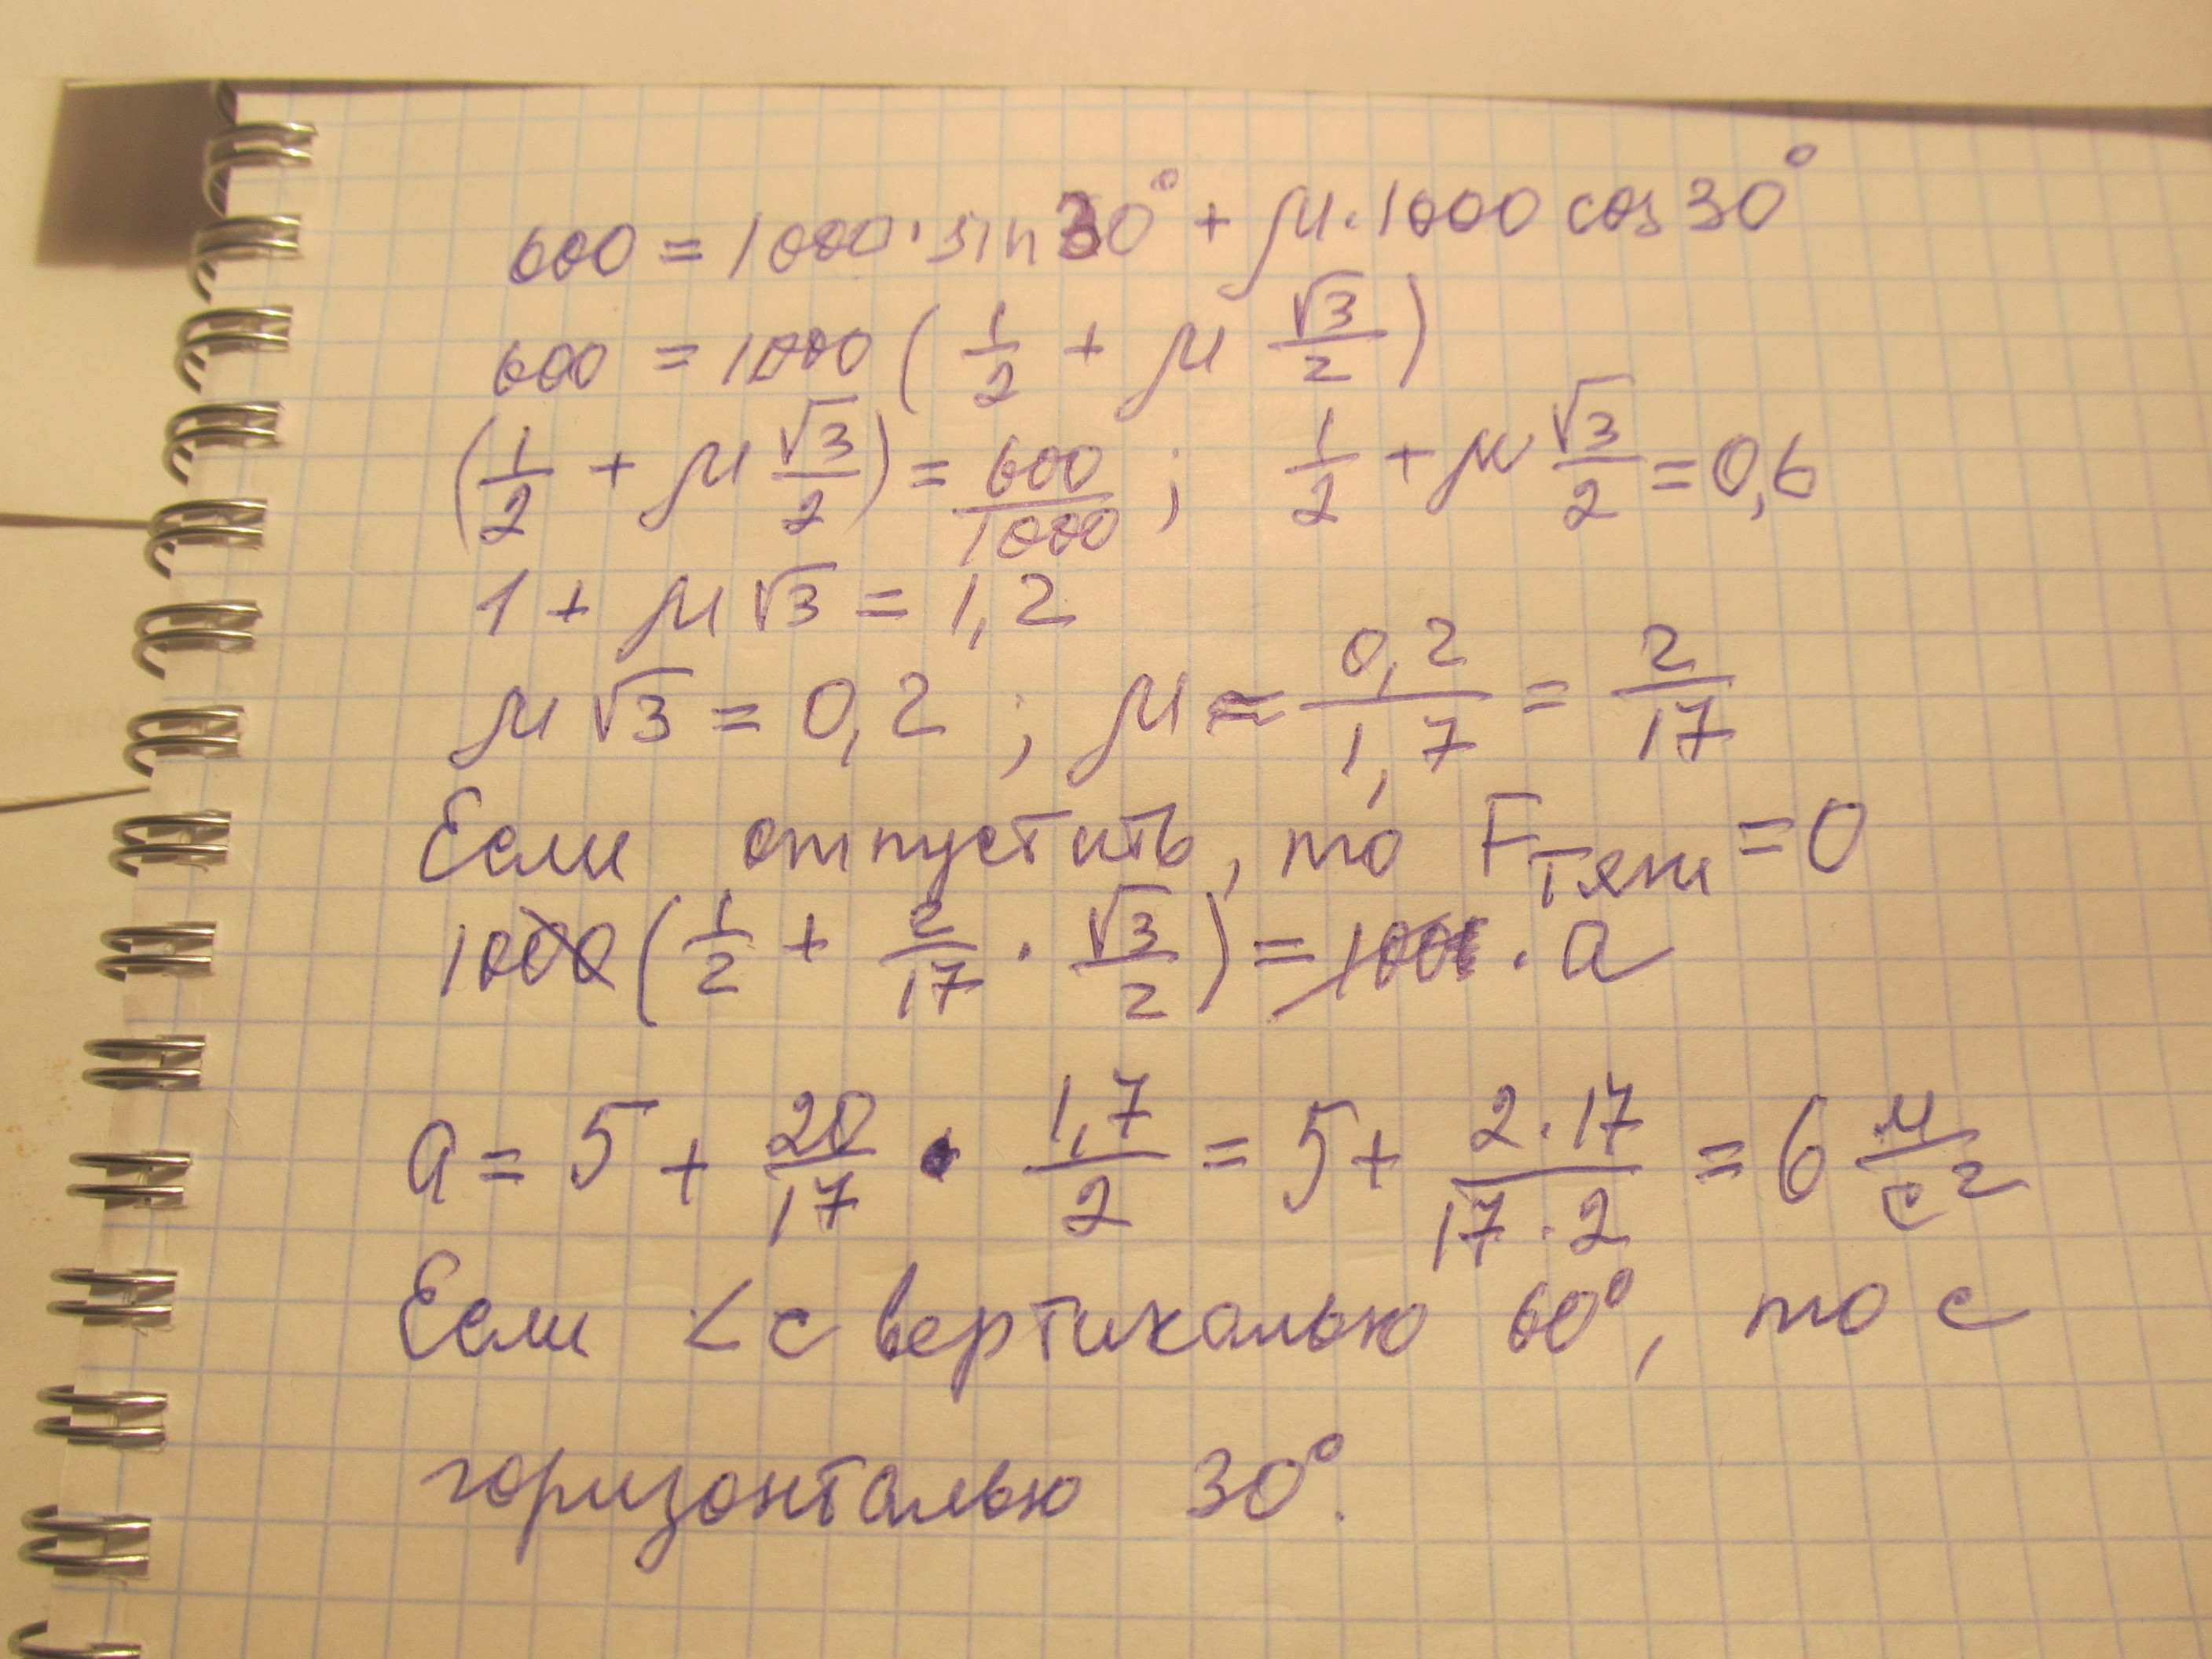 600 = 1000 · sin 30° + μ · 1000 cos 30°
600 = 1000 ( 1/2 + μ √3/2 )
( 1/2 + μ √3/2 ) = 600/1000 ; 1/2 + μ √3/2 = 0,6
1 + μ √3 = 1,2
μ √3 = 0,2 ; μ = 0,2/1,7 = 2/17
Если отпустить, то Fтяж = 0
1000 ( 1/2 + 2/17 · √3/2 ) = 100 · a
a = 5 + 20/17 · 1,7/2 = 5 + 2·17/17·2 = 6 м/с²
Если < с вертикалью 60°, то с
горизонталью 30°.